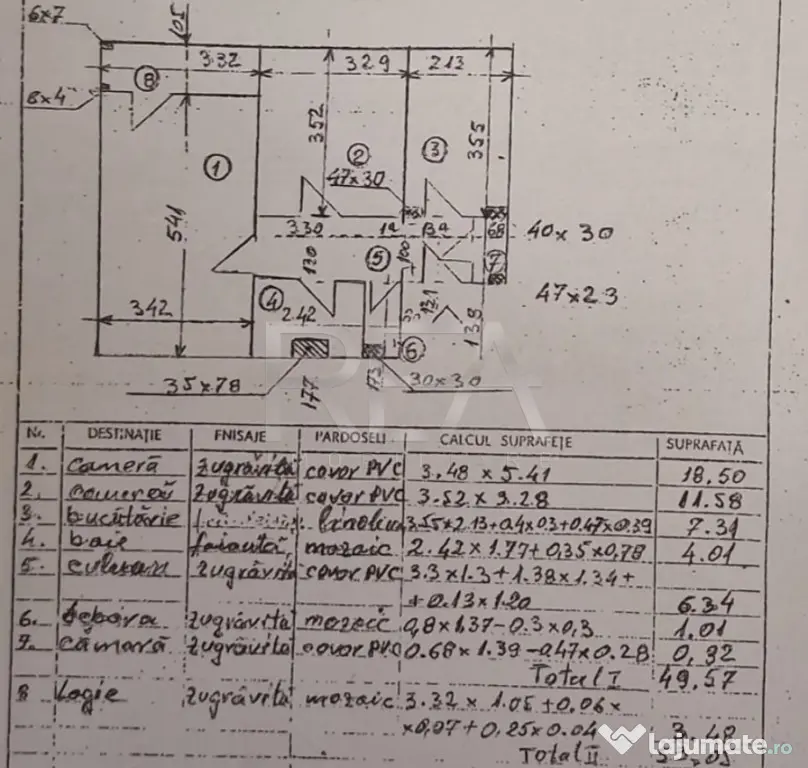 6x7
105
3.32
329
213
8
6x4
352
355
2
3
1
47x30
541
330
12
139
68
40x30
130
5
100
7
47x23
4
2.42
131
138
342
6
35x78
177
173
30x30
Nr. DESTINAȚIE FNISAJE PARDOSELI CALCUL SUPRAFEȚE SUPRAFAȚĂ
1. cameră zugrăvită covor PVC 3.48 x 5.41 18.50
2. cameră zugrăvită covor PVC 3.52 x 3.28 11.58
3. bucătărie linoleum 3.55x2.13+0.4x0.3+0.47x0.39 7.31
4. baie faianță, mozaic 2.42x1.77+0.35x0.78 4.01
5. culoar zugrăvită covor PVC 3.3x1.3+1.38x1.34+
+0.13x1.20 6.34
6. debara zugrăvită mozaic 0,8x1.37-0.3x0,3 1.01
7. cămară zugrăvită covor PVC 0.68x1.39-0.47x0.28 0,82
Total I 49.57
8 Logie zugrăvită mozaic 3.32 x 1.05+0.06x
x0,07+0,25x0.04 3.48
Total II
lajumate.ro